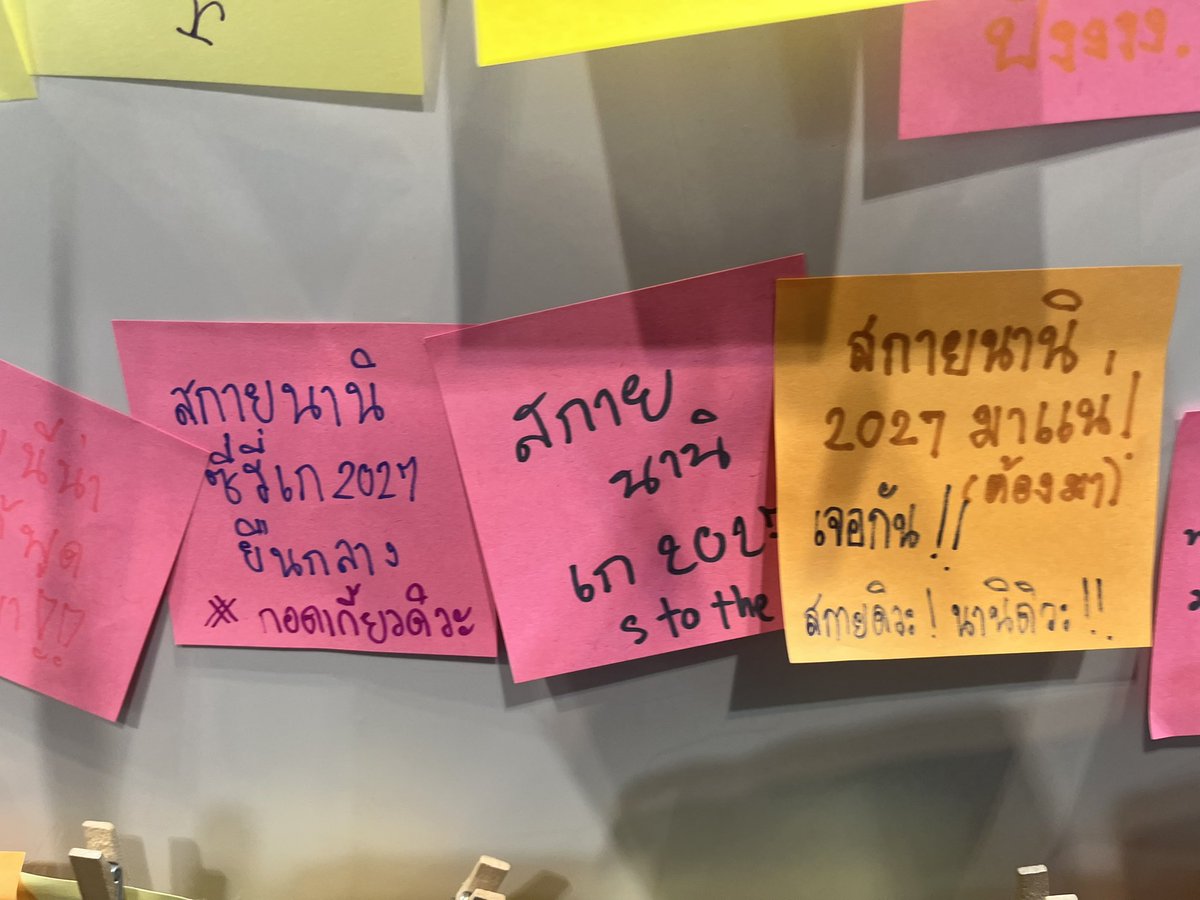 ปังงงง.
สกายนานิ
ซีรี่เก 2027
ยืนกลาง
* กอดเกี้ยวดิวะ
สกาย
นานิ
เก 202
s to the
สกายนานิ
2027 มาแน่!
(ต้องมา)
เจอกัน!!
สกายดิวะ! นานิดิวะ!!
นี้น่า
พูด